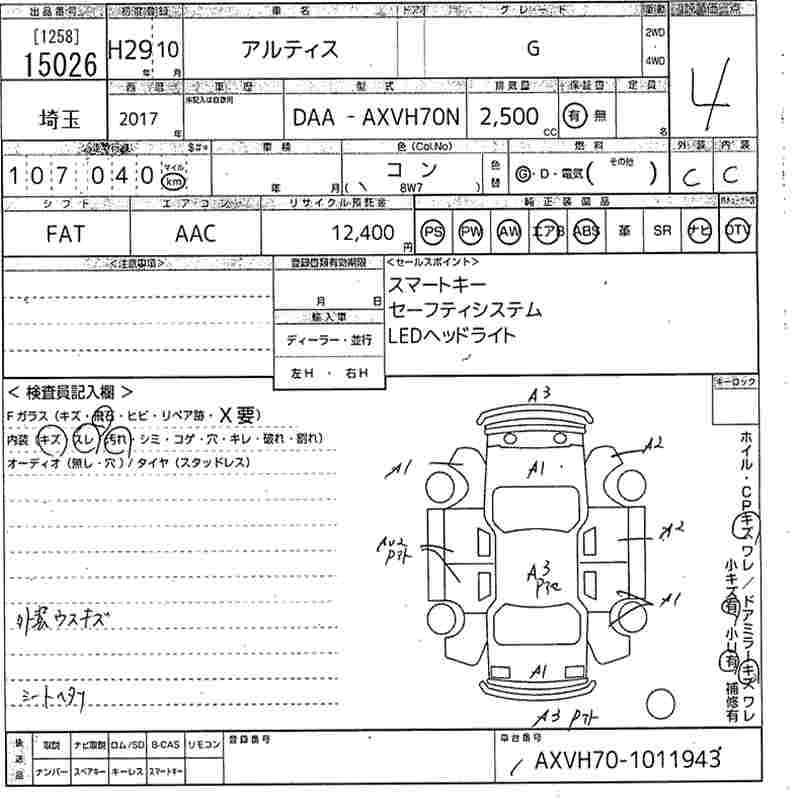 出品番号 初度登録 車名 ドア グレード 駆動 評価点
[1258]
15026 H29年 10月 アルティス G 2WD・4WD 4
西暦 車歴 型式 排気量 保証書 定員
埼玉 2017年 未記入は自家用 DAA - AXVH70N 2,500cc 有 無 名
車検 色(Col.No) 燃料 外装 内装
107040 マイル km 年 月 コン ( 8W7 ) 色替 G・D・電気( その他 ) C C
シフト エアコン リサイクル預託金 純正装備品
FAT AAC 12,400円 PS PW AW エアB ABS 革 SR ナビ DTV
<注意事項> 登録書類有効期限 <セールスポイント>
月 日 スマートキー
輸入車 セーフティシステム
ディーラー・並行 LEDヘッドライト
左H ・ 右H
< 検査員記入欄 > キーロック
Fガラス (キズ・飛石・ヒビ・リペア跡・X要)
内装 (キズ スレ 汚れ・シミ・コゲ・穴・キレ・破れ・割れ)
オーディオ (無し・穴) / タイヤ (スタッドレス)
A3
A1 A1 A2
AU2 Pアト A2
A3
A1
外装ウスキズ
シートヘタリ
A1
A3 Pアト
ホイル・CPキズ ワレ / ドアミラーキズ ワレ
小キズ有 / 小U有 補修有
後送品 取説 ナビ取説 ロム/SD B-CAS リモコン 登録番号 車台番号
ナンバー スペアキー キーレス スマートキー AXVH70-1011943